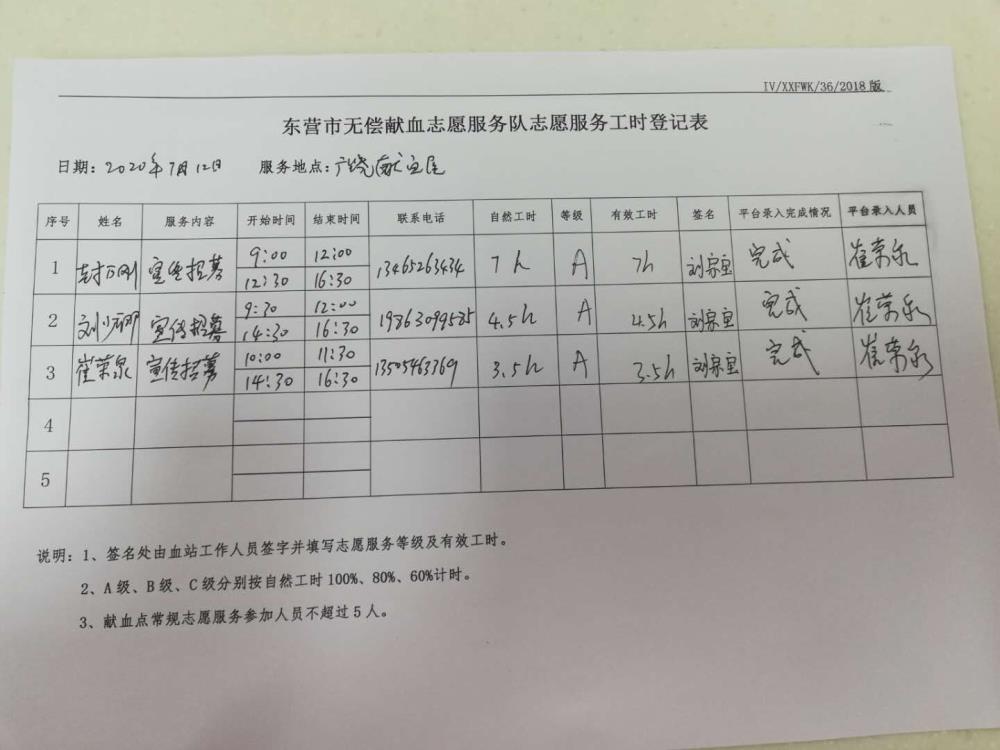 IV/XXFWK/36/2018版
东营市无偿献血志愿服务队志愿服务工时登记表
日期：2020年7月12日 服务地点：广饶献血屋
序号 姓名 服务内容 开始时间 结束时间 联系电话 自然工时 等级 有效工时 签名 平台录入完成情况 平台录入人员
9:00 12:00
1 宣传招募 13465263434 7h A 7h 刘宗宝 完成
12:30 16:30
9:30 12:00
2 刘少卿 宣传招募 19863099585 4.5h A 4.5h 刘宗宝 完成
14:30 16:30
10:00 11:30
3 崔荣泉 宣传招募 13505463369 3.5h A 3.5h 刘宗宝 完成
14:30 16:30
4
5
说明：1、签名处由血站工作人员签字并填写志愿服务等级及有效工时。
2、A级、B级、C级分别按自然工时100%、80%、60%计时。
3、献血点常规志愿服务参加人员不超过5人。